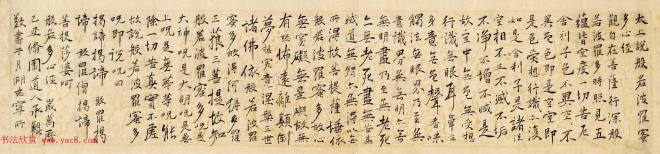 太上說般若波羅蜜
多心經
觀自在菩薩行深般
若波羅多時照見五
蘊皆空度一切苦厄
舍利子色不異空空不
異色色即是空空即
是色受想行識亦復
如是舍利子是諸法
空相不生不滅不垢
不淨不增不減是
故空中無色無受想
行識無眼耳鼻舌
身意無色聲香味
觸法無眼界乃至無
意識界無無明亦無
無明盡乃至無老死
亦無老死盡無苦集
滅道無智亦無得以無
所得故菩提薩埵依
般若波羅蜜多故心
無罣礙無罣礙故無
有恐怖遠離顛倒
夢想究竟涅槃三世
諸佛依般若波羅
蜜多故得阿耨多羅
三藐三菩提故知
般若波羅蜜多咒是
大神咒是大明咒是無
上咒是無等等咒能
除一切苦真實不虛
故說般若波羅蜜多
咒即說咒曰
揭諦揭諦 般羅揭
諦 般羅僧揭諦
菩提莎婆訶
般若多心經 歲萬曆
己丑 道人承觀
書于月湖
书法欣赏 www.yac8.com